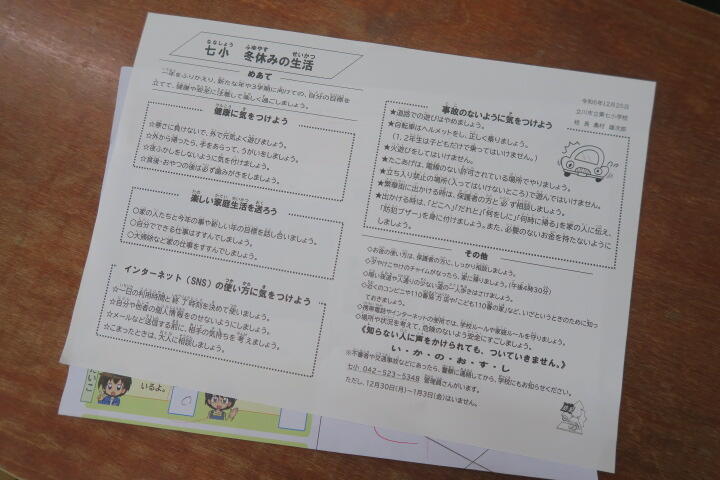 七小 冬休みの生活
めあて
一年をふりかえり、新たな年や3学期に向けての、自分の目標を
立てて、健康や安全に注意して楽しく過ごしましょう。
健康に気をつけよう
☆寒さに負けないで、外で元気よく遊びましょう。
☆外から帰ったら、手をあらって、うがいをしましょう。
☆夜ふかしをしないように気を付けましょう。
☆食後・おやつの後は必ず歯みがきをしましょう。
楽しい家庭生活を送ろう
○家の人たちと今年の事や新しい年の目標を話し合いましょう。
○自分でできる仕事はすすんでしましょう。
○大掃除など家の仕事をすすんでしましょう。
インターネット（SNS）の使い方に気をつけよう
☆一日の利用時間と終了時刻を決めて使いましょう。
☆自分や他者の個人情報をのせないようにしましょう。
☆メールなど送信する前に、相手の気持ちを考えましょう。
☆こまったときは、大人に相談しましょう。
令和6年12月25日
立川市立第七小学校
事故のないように気をつけよう
★道路での遊びはやめましょう。
★自転車はヘルメットをし、正しく乗りましょう。
（1、2年生は子どもだけで乗ってはいけません。）
★火遊びをしてはいけません。
★たこあげは、電線のない許可されている場所でやりましょう。
★立ち入り禁止の場所（入ってはいけないところ）で遊んではいけません。
★繁華街に出かける時は、保護者の方と必ず相談しましょう。
★出かける時は、「どこへ」「だれと」「何をしに」「何時に帰る」を家の人に伝え、
「防犯ブザー」を身に付けましょう。また、必要のないお金を持たないように
しましょう。
その他
◇お金の使い方は、保護者の方に、しっかり相談しましょう。
◇夕やけこやけのチャイムがなったら、家に帰りましょう。（午後4時30分）
◇暗い夜道や人通りの少ない道の一人歩きはさけましょう。
◇近くのコンビニや110番協力店や「こども110番の家」など、いざというときのために知っ
ておきましょう。
◇携帯電話やインターネットの使用では、学校ルールや家庭ルールを守りましょう。
◇場所や状況を考えて、危険のないよう安全にすごしましょう。
《知らない人に声をかけられても、ついていきません。》
い・か・の・お・す・し
※不審者や交通事故などにあったら、警察に連絡してから、学校にもお知らせください。
七小 042-523-5348 管理員さんがいます。
ただし、12月30日（月）～1月3日（金）はいません。
いるよ。